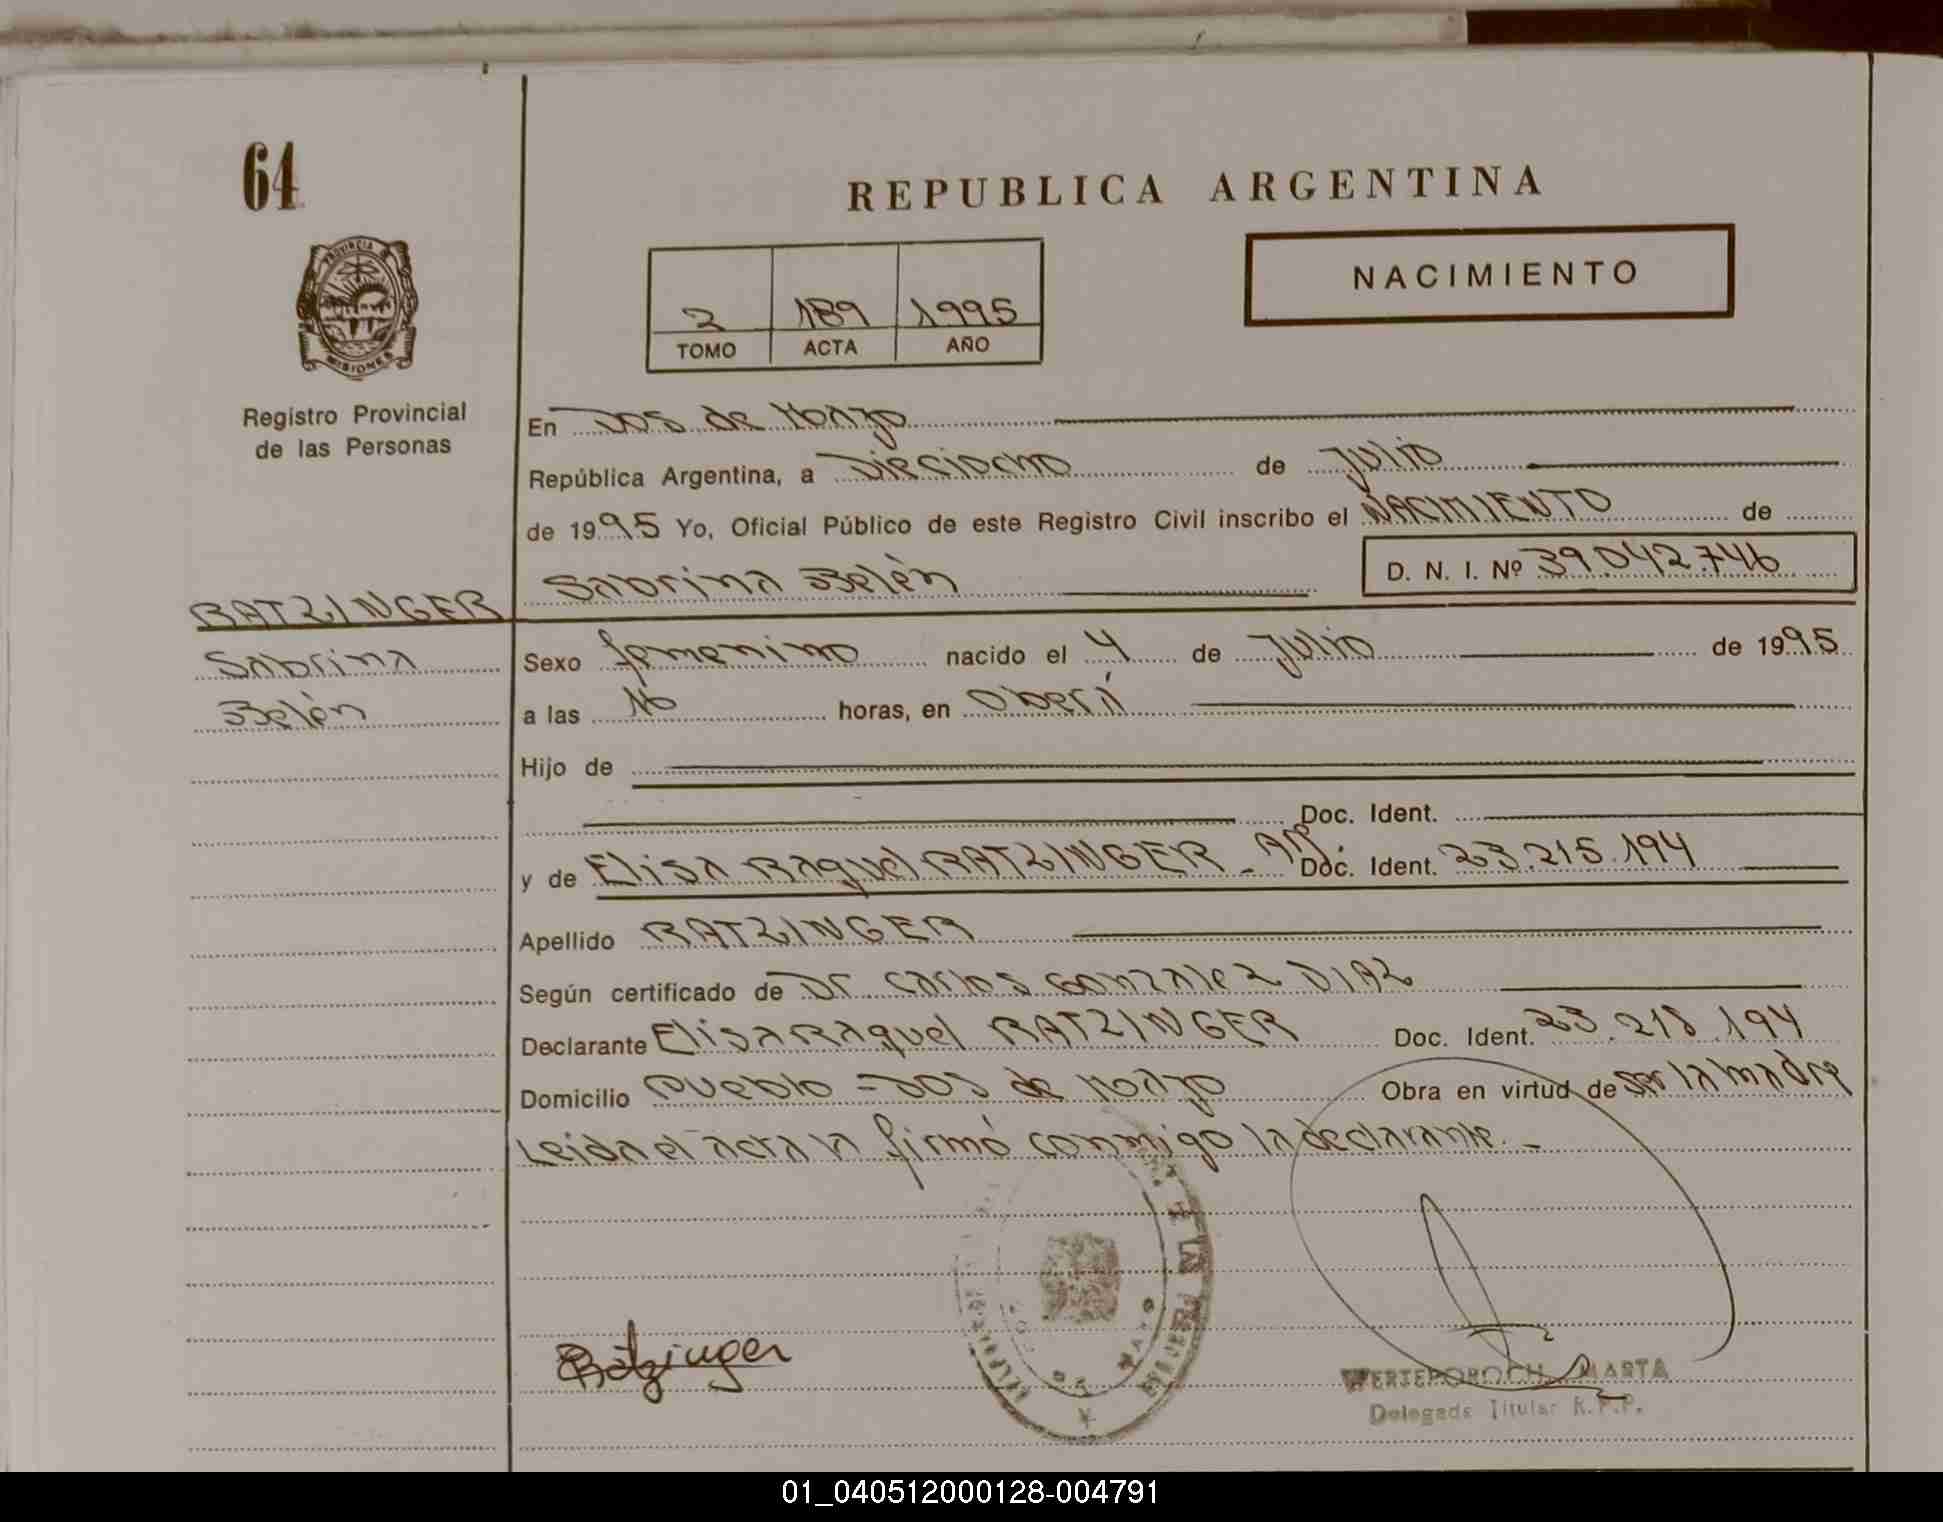 64
REPUBLICA ARGENTINA
PROVINCIA
MISIONES
NACIMIENTO
2 189 1995
TOMO ACTA AÑO
Registro Provincial
de las Personas
En Dos de Mayo
República Argentina, a Dieciocho de Julio
de 1995 Yo, Oficial Público de este Registro Civil inscribo el NACIMIENTO de
Sabrina Belén D. N. I. Nº 39.042.746
RATZINGER
Sabrina
Belén
Sexo femenino nacido el 4 de Julio de 1995
a las 16 horas, en Oberá
Hijo de
Doc. Ident.
y de Elisa Raquel RATZINGER - Arg. Doc. Ident. 23.215.194
Apellido RATZINGER
Según certificado de Dr. Carlos Gonzalez DIAZ
Declarante Elisa Raquel RATZINGER Doc. Ident. 23.215.194
Domicilio Pueblo - Dos de Mayo Obra en virtud de ser la madre
Leida el acta la firmó conmigo la declarante.-
Ratzinger
WERTEPOROCH MARTA
Delegada Titular R.P.P.
01_040512000128-004791